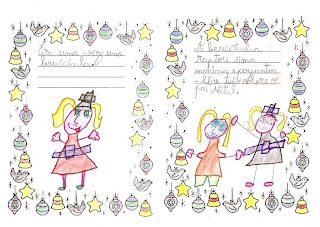 Era uma vez uma
bruxinha.
A bruxinha
raptou uma
menina e perguntou
-lhe tudo sobre o
pai Natal.